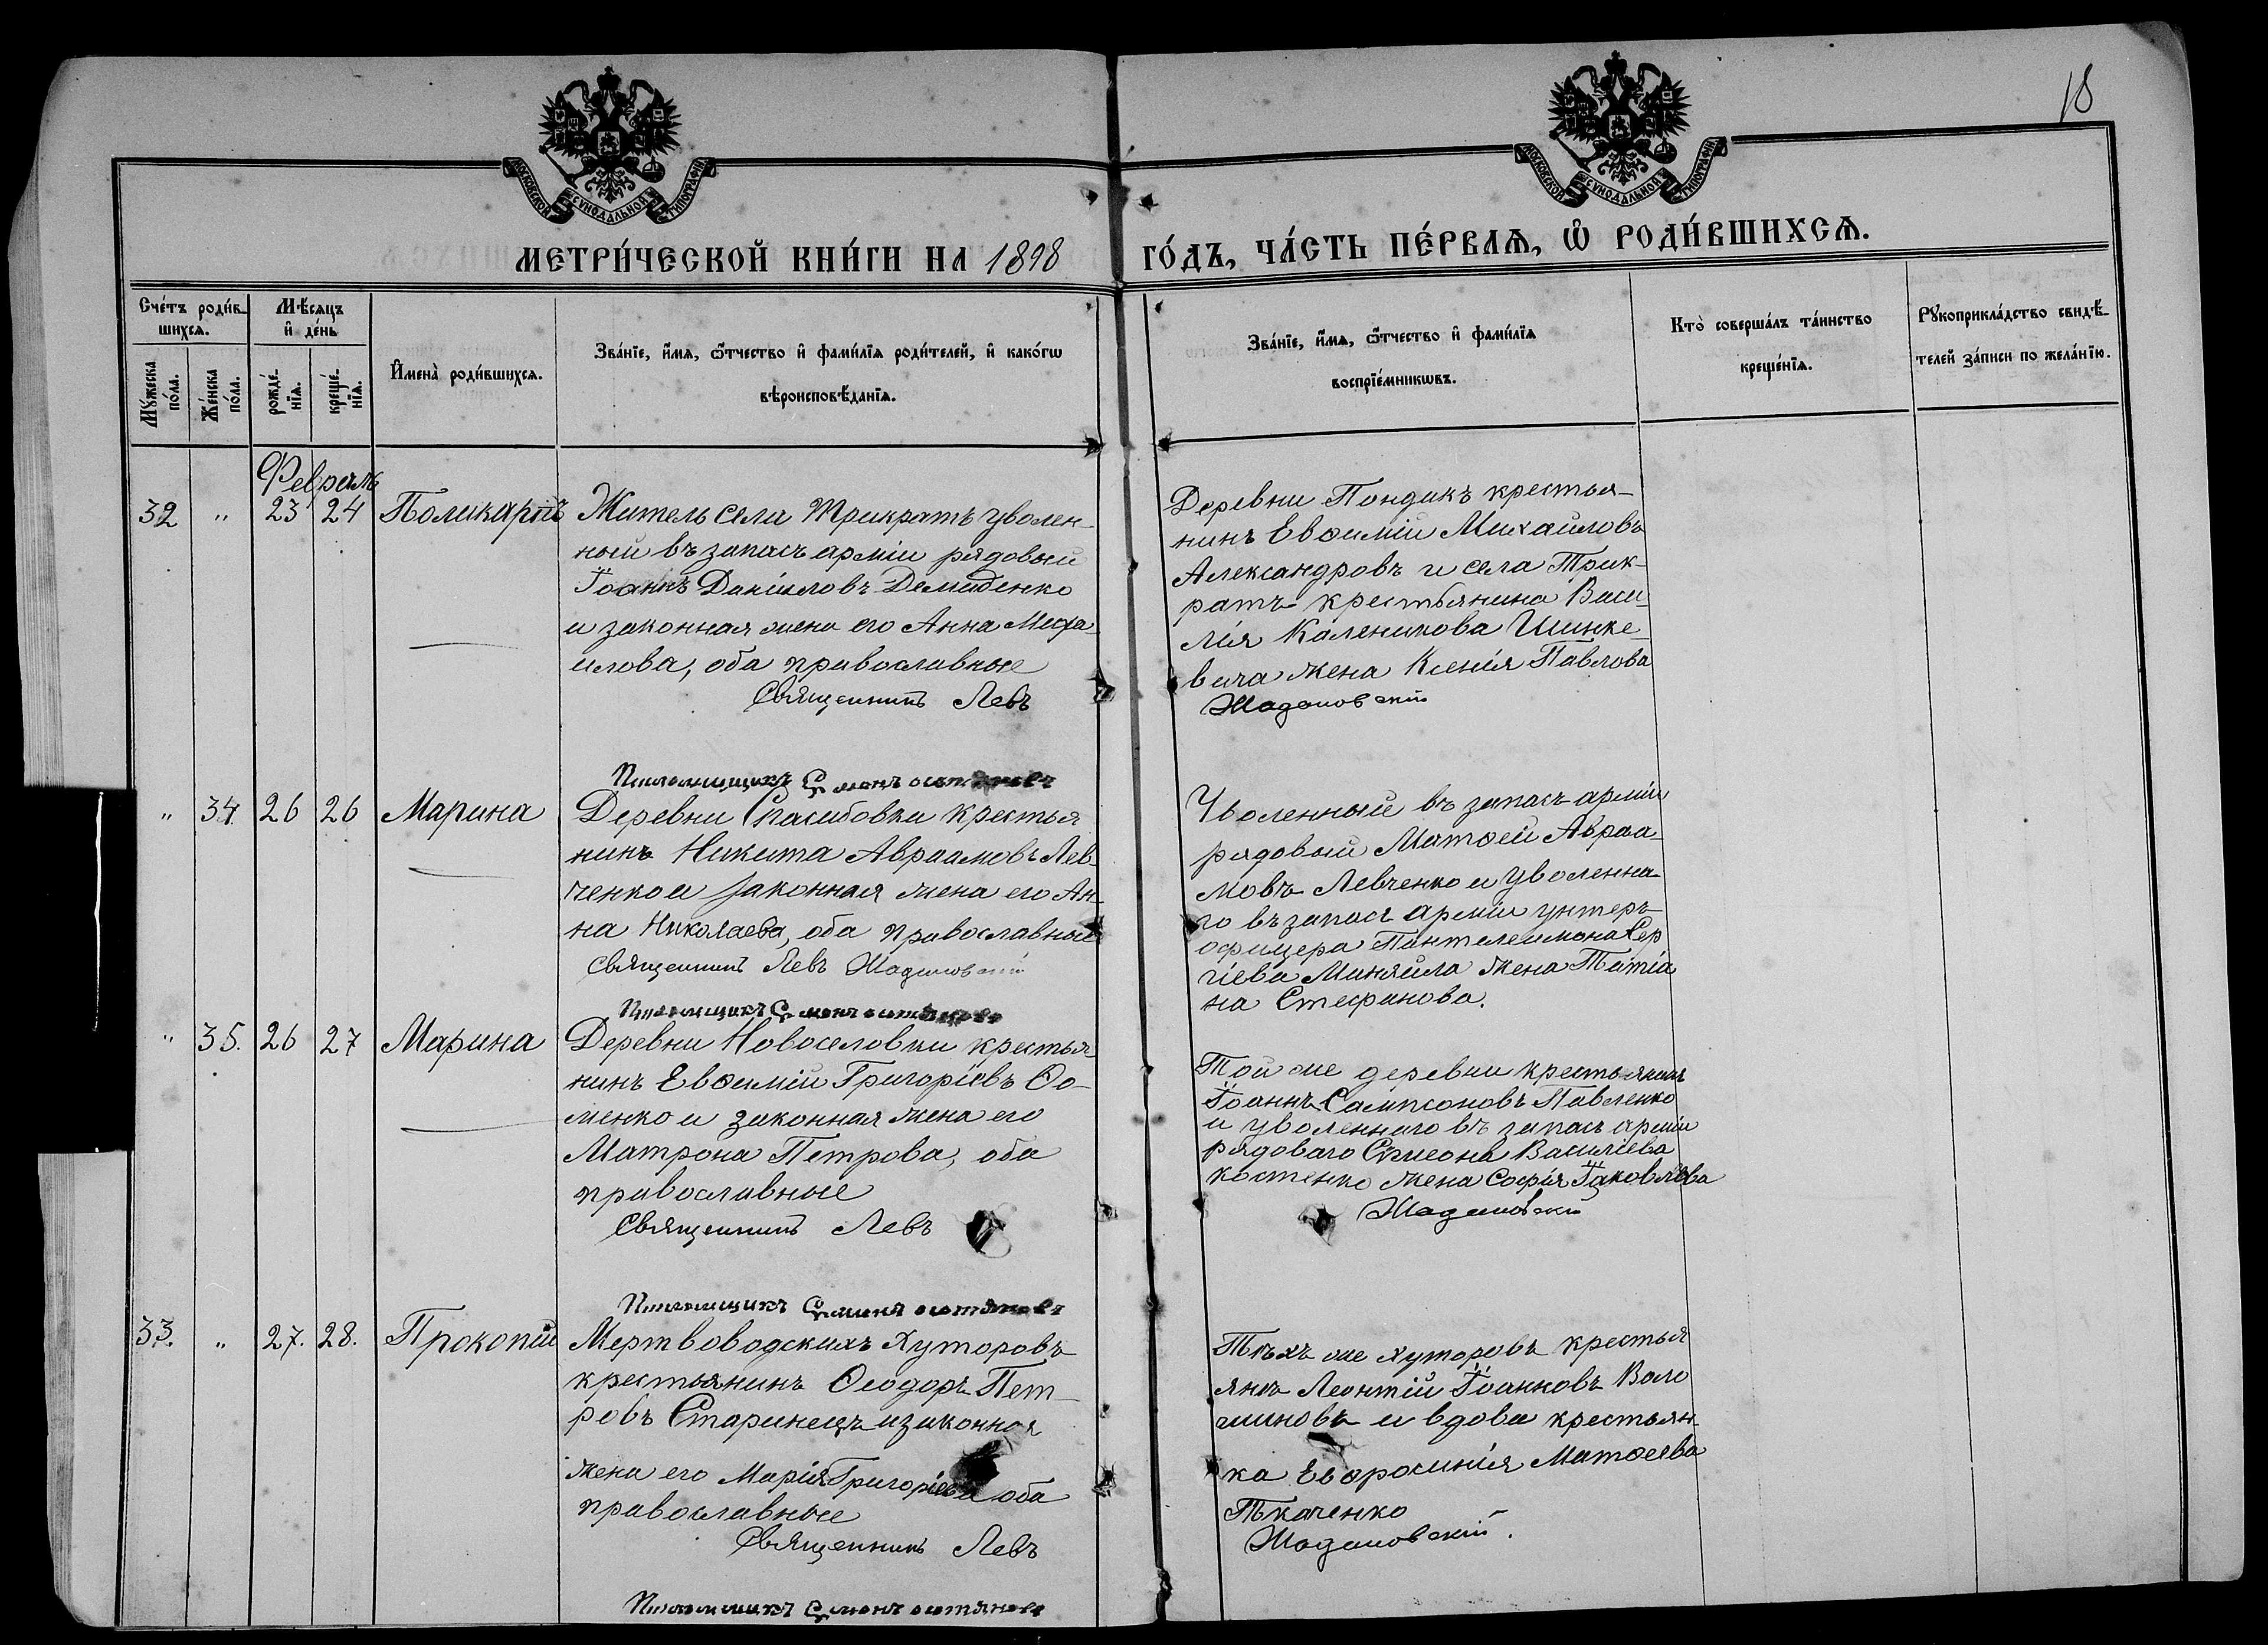 18
МОСКОВСКОЙ СѴНОДАЛЬНОЙ ТИПОГРАФІИ
МОСКОВСКОЙ СѴНОДАЛЬНОЙ ТИПОГРАФІИ
МЕТРИ́ЧЕСКОЙ КНИ́ГИ НА 1898 ГО́ДЪ, ЧА́СТЬ ПЕ́РВАѦ, Ѡ҆ РОДИ́ВШИХСѦ.
Сче́тъ роди́в-
шихсѧ.
Мꙋ́жеска
по́ла.
Же́нска
по́ла.
Мѣ́сѧцъ
и҆ де́нь
рожде́-
нїѧ.
креще́-
нїѧ.
И҆мена̀ роди́вшихсѧ.
Зва́нїе, и҆́мѧ, ѻ҆́тчество и҆ фами́лїѧ роди́телей, и҆ како́гѡ
вѣроисповѣ́данїѧ.
Зва́нїе, и҆́мѧ, ѻ҆́тчество и҆ фами́лїѧ
воспрїе́мникѡвъ.
Кто̀ соверша́лъ та́инство
креще́нїѧ.
Рꙋкоприкла́дство свидѣ́-
телей за́писи по жела́нїю.
Февраль
32 " 23 24 Поликарпъ
Житель села Трикратъ уволен-
ный въ запасъ арміи рядовый
Іоаннъ Даніиловъ Демиденко
и законная жена его Анна Миха-
илова, оба православные
Священникъ Левъ
Деревни Пондикъ крестья-
нинъ Евѳимій Михайловъ
Александровъ и села Трик-
ратъ крестьянина Васи-
лія Каленикова Шинке-
вича жена Ксенія Павлова
Шадановскій
Псаломщикъ Симонъ
" 34. 26 26 Марина
Деревни Спасибовки крестья
нинъ Никита Авраамовъ Лев-
ченко и законная жена его Ан-
на Николаева, оба православные
Священникъ Левъ Шадановскій
Уволенный въ запасъ арміи
рядовый Матѳей Авраа-
мовъ Левченко и уволенна-
го въ запасъ арміи унтеръ-
офицера Пантелеимона Сер
гіева Миняйла жена Татіа
на Стефанова.
Псаломщикъ Симонъ
" 35. 26 27 Марина
Деревни Новоселовки крестья-
нинъ Евѳимій Григоріевъ Ѳо-
менко и законная жена его
Матрона Петрова, оба
православные
Священникъ Левъ
Той же деревни крестьянинъ
Іоаннъ Сампсоновъ Павленко
и уволеннаго въ запасъ арміи
рядоваго Симеона Василіева
Костенко жена Софія Іаковлева
Шадановскій
Псаломщикъ Симонъ
33. " 27. 28. Прокопій
Мертвоводскихъ Хуторовъ
крестьянинъ Ѳеодоръ Пет-
ровъ Старинецъ и законная
жена его Марія Григоріева оба
православные
Священникъ Левъ
Тѣхъ же хуторовъ крестья
янъ Леонтій Іоанновъ Воло
шиновъ и вдова крестьян
ка Евфросинія Матѳеева
Ткаченко
Шадановскій.
Псаломщикъ Симонъ